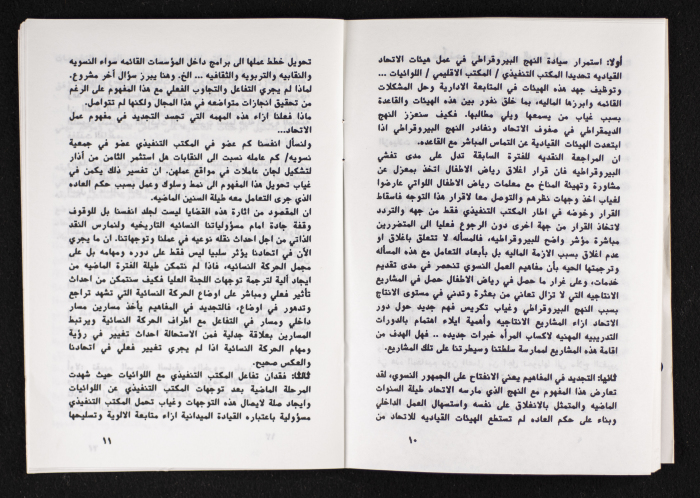 أولا: استمرار سيادة النهج البيروقراطي في عمل هيئات الاتحاد
القياديه تحديدا المكتب التنفيذي / المكتب الاقليمي / اللوائيات ...
وتوظيف جهد هذه الهيئات في المتابعة الادارية وحل المشكلات
القائمه وابرزها الماليه، بما خلق نفور بين هذه الهيئات والقاعدة
بسبب غياب من يسمعها ويلي مطالبها. فكيف سنعزز النهج
الديمقراطي في صفوف الاتحاد ونغادر النهج البيروقراطي اذا
ابتعدت الهيئات القيادية عن التماس المباشر مع القاعده.
ان المراجعة النقديه للفترة السابقة تدل على مدى تفشي
البيروقراطيه فان قرار اغلاق رياض الاطفال اتخذ بمعزل عن
مشاورة وتهيئة المناخ مع معلمات رياض الاطفال اللواتي عارضوا
لغياب اخذ وجهات نظرهم والتوصل معا لاقرار هذا التوجه فاسقاط
القرار وخوضه في اطار المكتب التنفيذي فقط من جهه والتردد
لاتخاذ القرار من جهة اخرى دون الرجوع فعليا الى المتضررين
مباشرة مؤشر واضح للبيروقراطيه، فالمسأله لا تتعلق باغلاق او
عدم اغلاق بسبب الازمة الماليه بل بأبعاد التعامل مع هذه المسأله
وترجمتها الحيه بأن مفاهيم العمل النسوي تنحصر في مدى تقديم
خدمات، وعلى غرار ما حصل في رياض الاطفال حصل في المشاريع
الانتاجيه التي لا تزال تعاني من بعثرة وتدني في مستوى الانتاج
بسبب النهج البيروقراطي وغياب تكريس فهم جديد حول دور
الاتحاد ازاء المشاريع الانتاجيه وأهمية ايلاء اهتمام بالدورات
التدريبيه المهنيه لاكساب المرأه خبرات جديده .. فهل الهدف من
اقامة هذه المشاريع لممارسة سلطتنا وسيطرتنا على تلك المشاريع.
ثانيها: التجديد في المفاهيم يعني الانفتاح على الجمهور النسوي، لقد
تعارض هذا المفهوم مع النهج الذي مارسه الاتحاد طيلة السنوات
الماضيه والمتمثل بالانغلاق على نفسه واستسهال العمل الداخلي
وبناء على حكم العاده لم تستطع الهيئات القياديه للاتحاد من
١٠
تحويل خطط عملها الى برامج داخل المؤسسات القائمه سواء النسويه
والنقابيه والتربويه والثقافيه ... الخ. وهنا يبرز سؤال آخر مشروع.
لماذا لم يجري التفاعل والتجاوب الفعلي مع هذا المفهوم على الرغم
من تحقيق انجازات متواضعه في هذا المجال ولكنها لم تتواصل.
ماذا فعلنا ازاء هذه المهمه التي تجسد التجديد في مفهوم عمل
الاتحاد...
ولنسأل انفسنا كم عضو في المكتب التنفيذي عضو في جمعية
نسويه/ كم عامله نسبت الى النقابات هل استثمر الثامن من آذار
لتشكيل لجان عاملات في مواقع عملهن. ان تفسير ذلك يكمن في
غياب تحويل هذا المفهوم الى نمط وسلوك وعمل بسبب حكم العاده
الذي جرى التعامل معه طيلة السنين الماضيه.
ان المقصود من اثارة هذه القضايا ليست لجلد انفسنا بل للوقوف
وقفة جادة امام مسؤولياتنا النسائيه التاريخيه ولنمارس النقد
الذاتي من اجل احداث نقله نوعيه في عملنا وتوجهاتنا. ان ما يجري
الآن في اتحادنا يؤثر سلبيا ليس فقط على دوره ومهامه بل على
مجمل الحركة النسائيه، فاذا لم نتمكن طيلة الفترة الماضيه من
ايجاد آلية لترجمة توجهات اللجنة العليا فكيف سنتمكن من احداث
تأثير فعلي ومباشر على اوضاع الحركة النسائية التي تشهد تراجع
وتدهور في اوضاع، فالتجديد في المفاهيم يأخذ مسارين مسار
داخلي ومسار في التفاعل مع اطراف الحركة النسائيه ويرتبط
المسارين بعلاقة جدلية فمن الاستحالة احداث تغيير في رؤية
ومهام الحركة النسائية اذا لم يجري تغيير فعلي في اتحادنا
والعكس صحيح.
ثالثها: فقدان تفاعل المكتب التنفيذي مع اللوائيات حيث شهدت
المرحلة الماضية بعد توجهات المكتب التنفيذي عن اللوائيات
وايجاد صلة لايصال هذه التوجهات وغياب تحمل المكتب التنفيذي
مسؤولية باعتباره القيادة الميدانية ازاء متابعة الالوية وتسليحها
١١